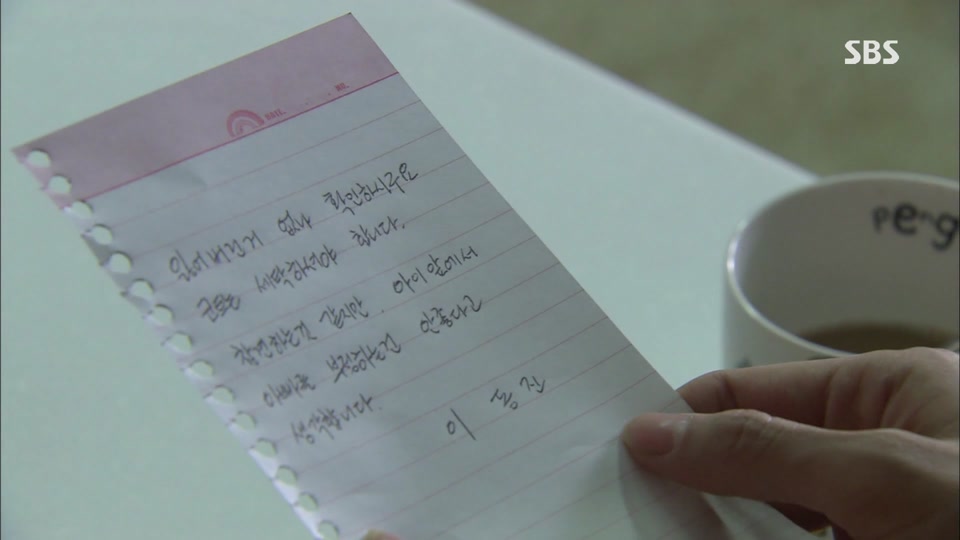 SBS
잃어버린거 없나 확인하십시요
코트는 세탁하셔야 합니다.
참견하는것 같지만. 아이앞에서
아빠를 부정하는건 안좋다고
생각합니다.
이 동진
peng